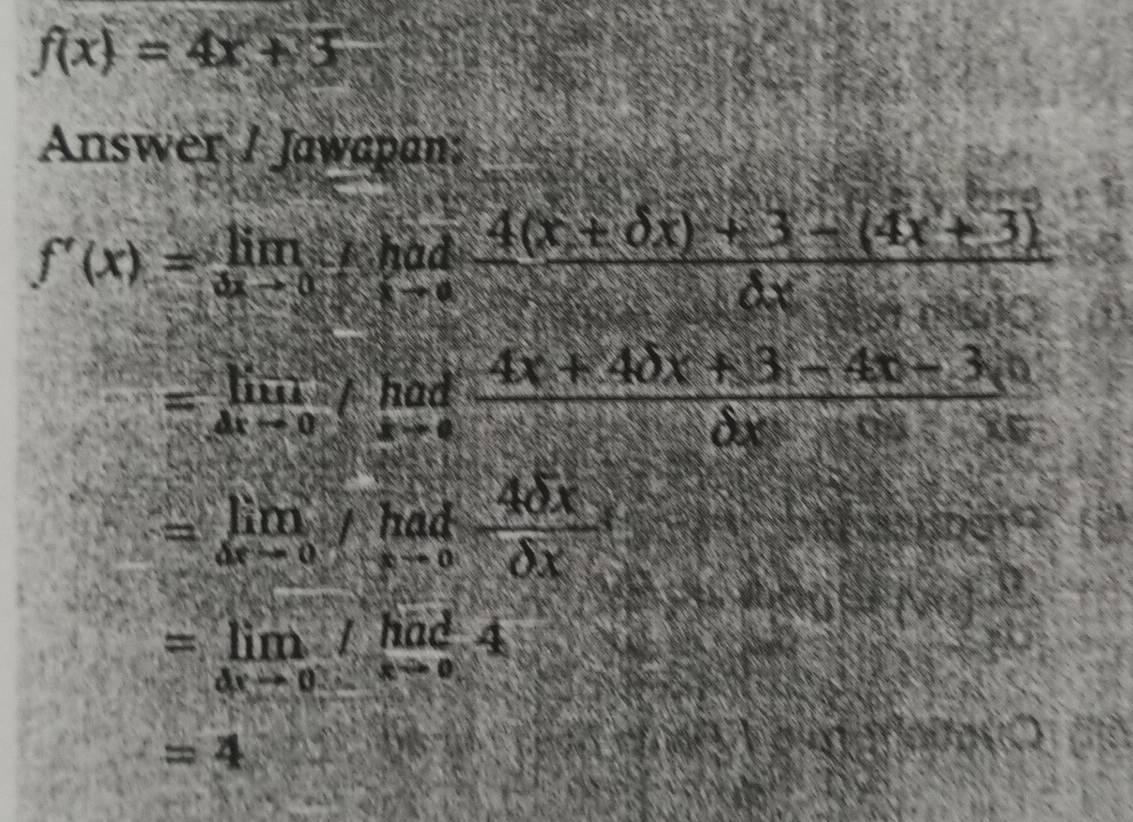 f(x) = 4x + 3
Answer / Jawapan:
f′(x) = lim δx → 0 / had x → 0 4(x + δx) + 3 − (4x + 3) / δx
= lim δx → 0 / had x → 0 4x + 4δx + 3 − 4x − 3 / δx
= lim δx → 0 / had x → 0 4δx / δx
= lim δx → 0 / had x → 0 4
= 4